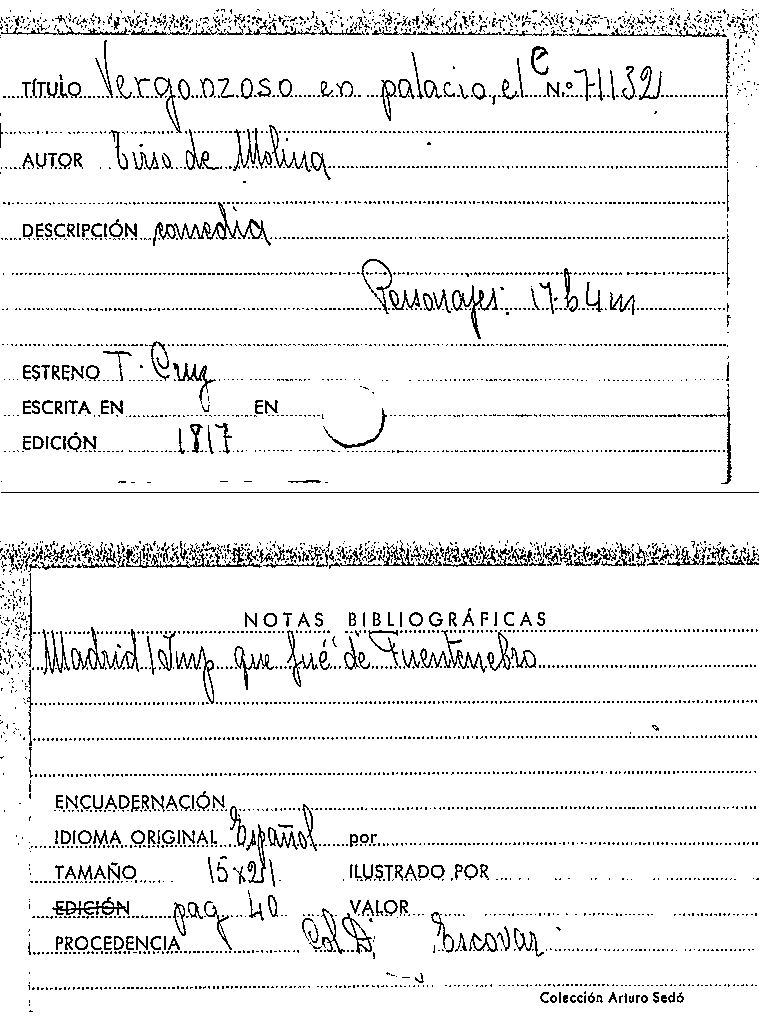 TÍTULO Vergonzoso en palacio, el e N.º 71132
AUTOR Tirso de Molina
DESCRIPCIÓN comedia
Personajes: 17-h 4 m
ESTRENO T. Cruz
ESCRITA EN EN
EDICIÓN 1817
NOTAS BIBLIOGRÁFICAS
Madrid/Imp que fué de Fuentenebro
ENCUADERNACIÓN
IDIOMA ORIGINAL Español por
TAMAÑO 15x21 ILUSTRADO POR
EDICIÓN pag 40 VALOR
PROCEDENCIA Col. D. Escovar
Colección Arturo Sedó